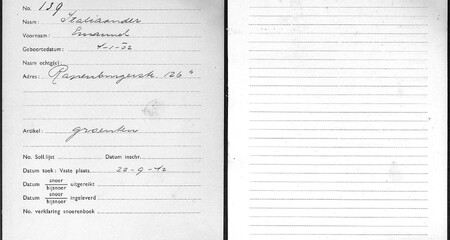 No. 139
Naam: Italiaander
Voornaam: Emanuel
Geboortedatum: 4-1-32
Naam echtg(e):
Adres: Rapenburgerstr. 126 "
Artikel: groenten
No. Soll.lijst Datum inschr.
Datum toek: Vaste plaats 22-9-42
Datum snoer
bijsnoer uitgereikt
Datum snoer
bijsnoer ingeleverd
No. verklaring snoerenboek